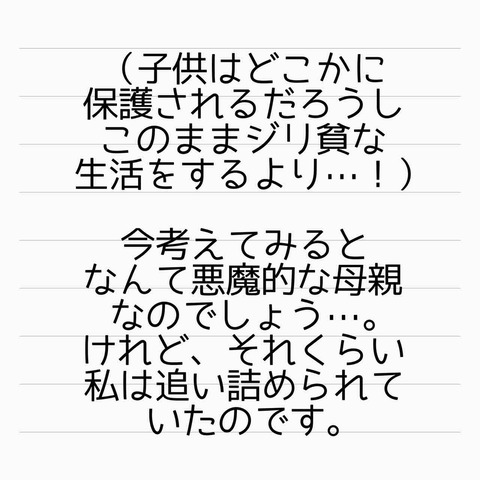 （子供はどこかに
保護されるだろうし
このままジリ貧な
生活をするより…！）
今考えてみると
なんて悪魔的な母親
なのでしょう…。
けれど、それくらい
私は追い詰められて
いたのです。